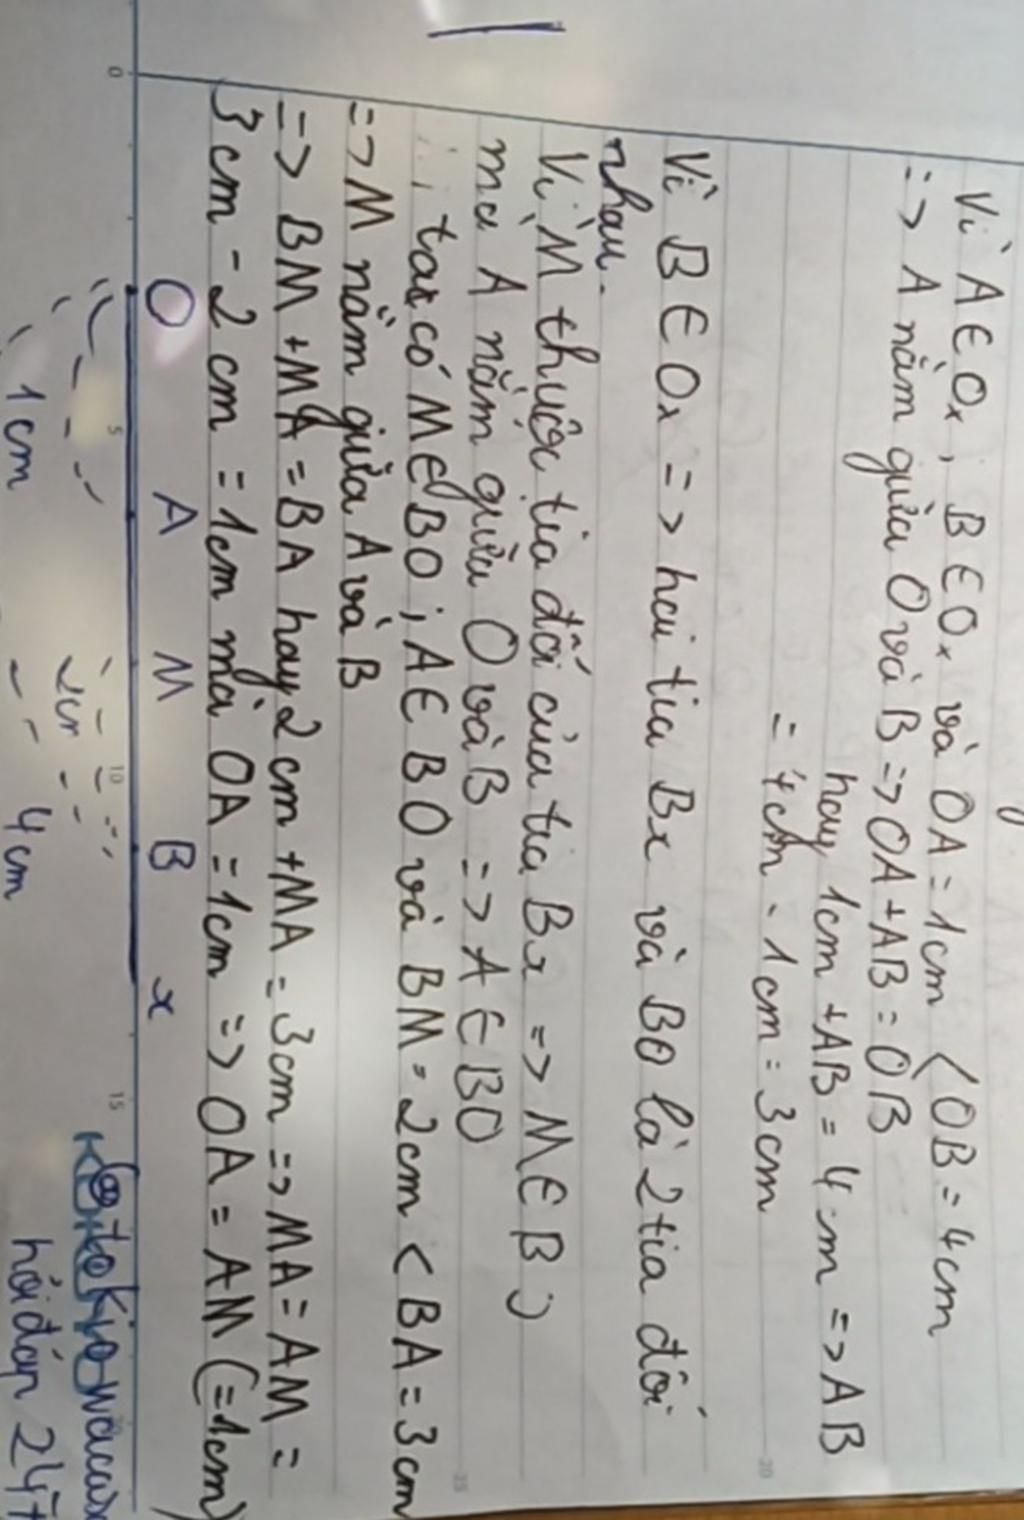 Vì A ∈ Ox, B ∈ Ox và OA = 1cm < OB = 4cm
=> A nằm giữa O và B => OA + AB = OB
hay 1cm + AB = 4cm => AB
= 4cm - 1cm = 3cm
Vì B ∈ Ox => hai tia Bx và BO là 2 tia đối
nhau.
Vì M thuộc tia đối của tia Bx => M ∈ BO
mà A nằm giữa O và B => A ∈ BO
ta có M ∈ BO ; A ∈ BO và BM = 2cm < BA = 3cm
=> M nằm giữa A và B
=> BM + MA = BA hay 2cm + MA = 3cm => MA = AM =
3cm - 2cm = 1cm mà OA = 1cm => OA = AM (= 1cm)
O A M B x
1cm 2cm
4cm
hỏi đáp 247
0 5 10 15
20
25